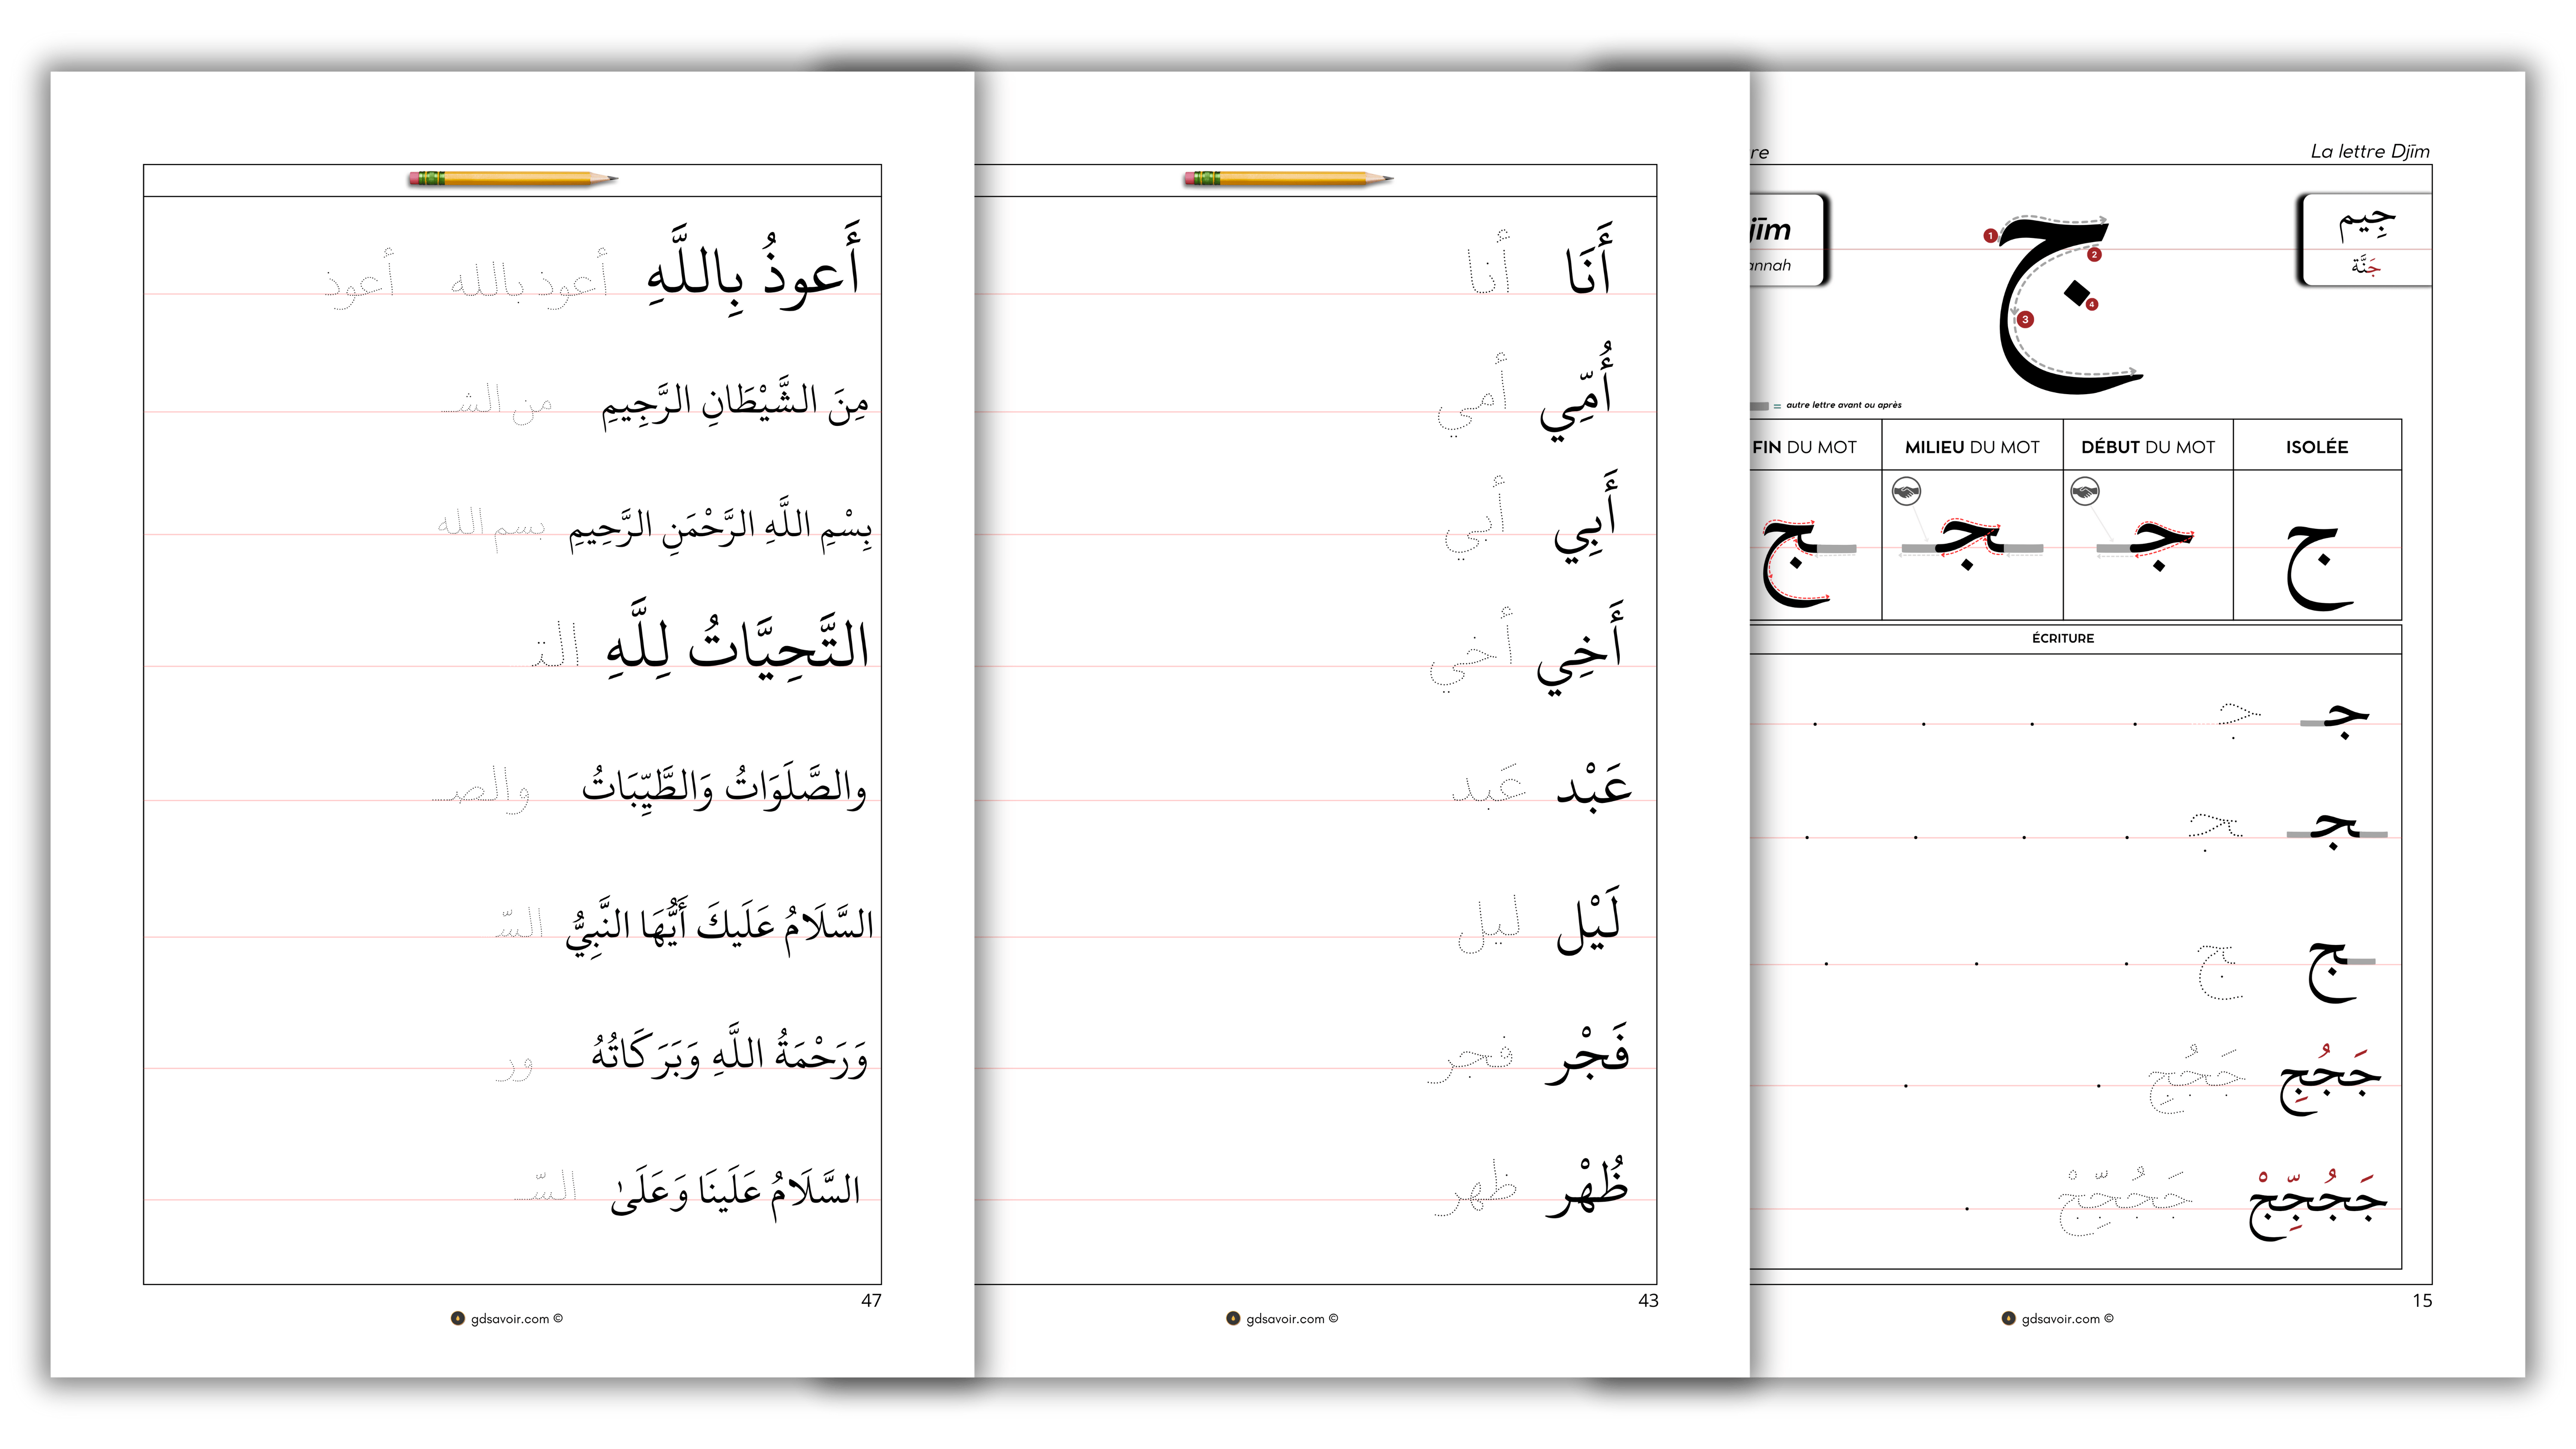 أَعوذُ بِاللَّهِ أعوذ بالله أعوذ
مِنَ الشَّيْطَانِ الرَّجِيمِ من الشـ
بِسْمِ اللَّهِ الرَّحْمَنِ الرَّحِيمِ بسم الله
التَّحِيَّاتُ لِلَّهِ التـ
والصَّلَوَاتُ وَالطَّيِّبَاتُ والصـ
السَّلَامُ عَلَيكَ أَيُّهَا النَّبِيُّ السّـ
وَرَحْمَةُ اللَّهِ وَبَرَكَاتُهُ ور
السَّلَامُ عَلَينَا وَعَلَىٰ السّـ
47
gdsavoir.com ©
أَنَا أنا
أُمِّي أمي
أَبِي أبي
أَخِي أخي
عَبْد عَبد
لَيْل ليل
فَجْر فجر
ظُهْر ظهر
43
gdsavoir.com ©
re
La lettre Djīm
jīm
annah
ج
1
2
3
4
جِيم
جَنَّة
= autre lettre avant ou après
FIN DU MOT MILIEU DU MOT DÉBUT DU MOT ISOLÉE
ـج ـجـ جـ ج
ÉCRITURE
جـ جـ
ـجـ ـجـ
ـج ـج
جَجُجِ جَجُجِ
جَجُجِّجْ جَجُجِّجْ
15
gdsavoir.com ©